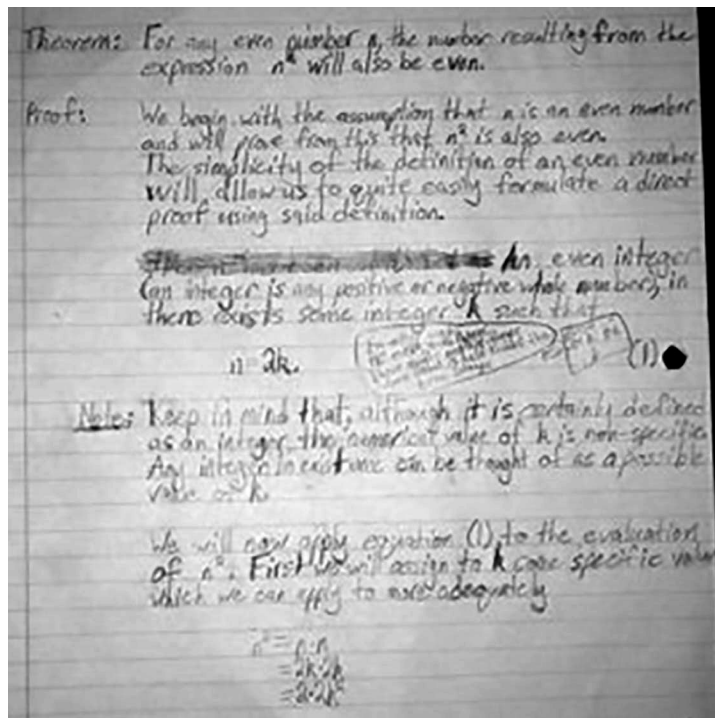 Theorem: For any even number n, the number resulting from the
expression n² will also be even.
Proof: We begin with the assumption that n is an even number
and will prove from this that n² is also even.
The simplicity of the definition of an even number
will allow us to quite easily formulate a direct
proof using said definition.
An even integer
(an integer is any positive or negative whole number), in
there exists some integer k such that
n = 2k. (1)
Note: Keep in mind that, although it is certainly defined
as an integer, the numerical value of k is non-specific.
Any integer in existence can be thought of as a possible
value of k.
We will now apply equation (1) to the evaluation
of n². First we will assign to k some specific value
which we can apply to more adequately
n² = n·n
= 2k·2k
= 2·2k²